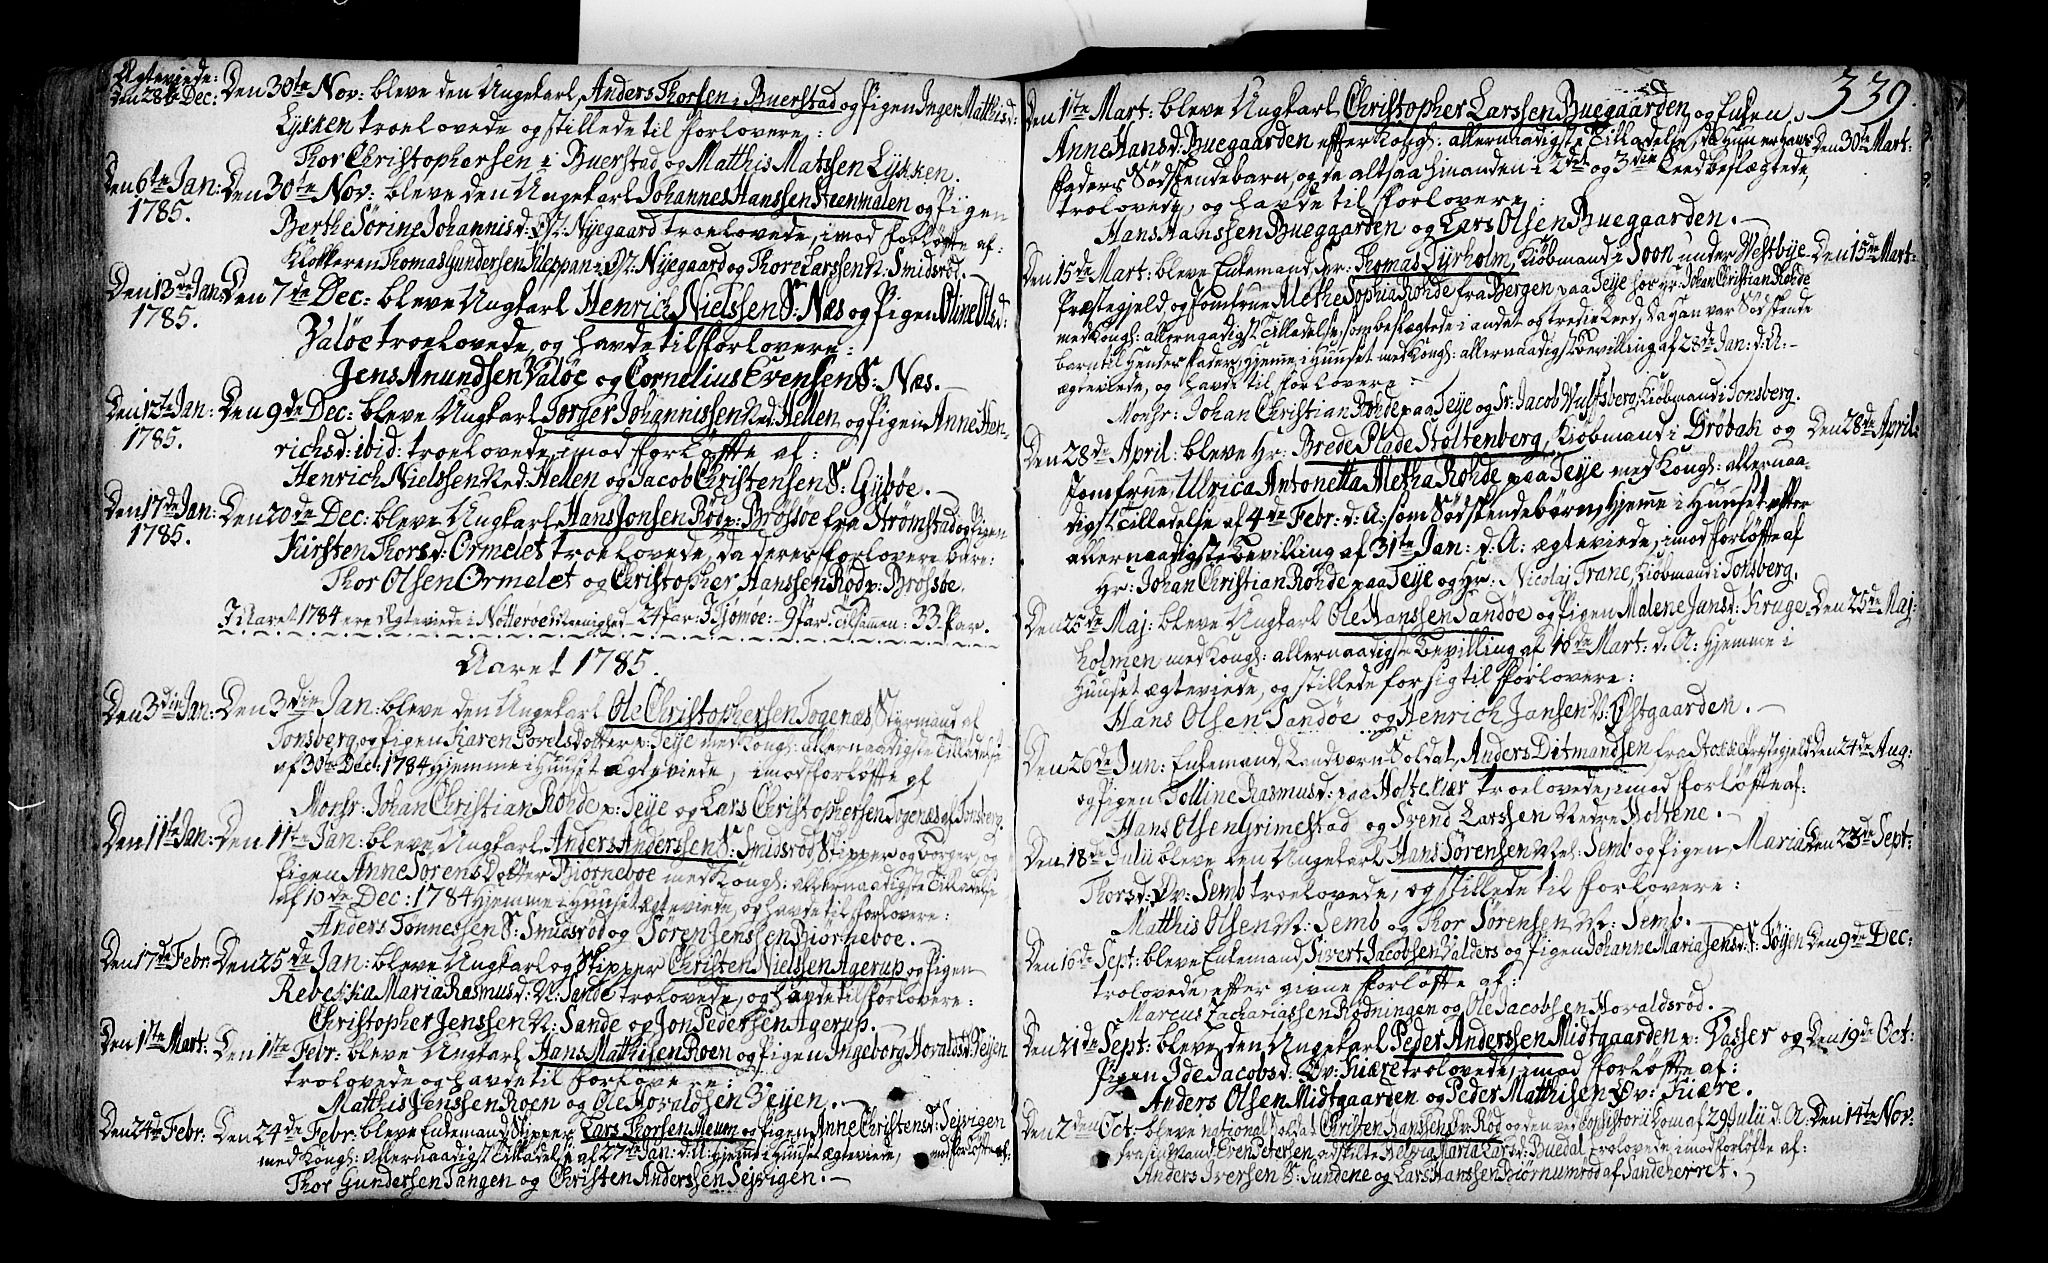 Ægteviede:
Den 28de Dec: Den 30te Nov: bleve den Ungekarl Anders Thorsen i Buerstad og Pigen Inger Mathisd:
Lykken troelovede og stillede til Forlovere:
Thor Christophersen i Buerstad og Matthis Matssen Lykken.
Den 6te Jan: Den 30te Nov: bleve den Ungekarl Johannes Hanssen Steenmalen og Pigen
1785. Berthe Sørine Johannisd: Ø: Nyegaard troelovede, imod Forløfte af:
Klokkeren Thomas Gundersen Kleppan i Ø: Nyegaard og Thore Larssen N: Smidsrød.
Den 13de Jan: Den 7de Dec: bleve Ungkarl Henrich Nielssen S: Næs og Pigen Oline Olsd:
1785. Valøe troelovede, og havde til Forlovere:
Jens Anundsen Valøe og Cornelius Evensen S: Næs.
Den 12te Jan: Den 9de Dec: bleve Ungkarl Torger Johannissen Ned: Hellen og Pigen Anne Hen-
1785. richsd: ibid: troelovede, imod Forløfte af:
Henrich Nielssen Ned: Hellen og Jacob Christensen S: Gybøe.
Den 17de Jan: Den 20de Dec: bleve Ungkarl Hans Jonsen Rød p: Brøsøe fra Strømstad og Pigen
1785. Kirsten Thorsd: Ormelet troelovede, da deres Forlovere bare:
Thor Olsen Ormelet og Christopher Hanssen Rød p: Brøsøe.
I Aaret 1784 ere Ægteviede i Nøtterøe Menighed 24 Par: I Tjømøe: 9 Par. Tilsammen: 33 Par.
Aaret 1785.
Den 3die Jan: Den 3die Jan: bleve den Ungekarl Ole Christophersen Togenæs Styrmand af
Tonsberg og Pigen Karen Povelsdotter p: Teye med Kongl: allernaadigste Tilladelse
af 30te Dec: 1784 Hjemme i Huuset ægteviede, imod Forløfte af
Monsr: Johan Christian Rohde p: Teye og Lars Christophersen Togenæs af Tonsberg.
Den 11te Jan: Den 11te Jan: bleve Ungkarl Anders Anderssen S: Smidsrød Skipper og Borger, og
Pigen Anne Sørens Dotter Biørneboe med Kongl: allernaadigste Tilladelse
af 10de Dec: 1784 Hjemme i Huuset ægteviede, og havde til Forlovere:
Anders Tønnessen S: Smidsrød og Søren Jenssen Biørneboe.
Den 17de Febr: Den 25de Jan: bleve Ungkarl og Skipper Christen Nielssen Agerup og Pigen
Rebekka Maria Rasmusd: N: Sande trolovede, og havde til Forlovere:
Christopher Jenssen N: Sande og Jon Pedersen Agerup.
Den 1ste Mart: Den 1ste Febr: bleve Ungkarl Hans Mathisen Roen og Pigen Ingeborg Hovaldsd: Veyen
trolovede og havde til Forlovere:
Matthis Jenssen Roen og Ole Hovaldsen Veyen.
Den 24de Febr: Den 24de Febr: bleve Enkemand Skipper Lars Thorsen Meum og Pigen Anne Christensd: Sejvigen
med Kongl: Allernaadigst Tilladelse af 27de Jan: d: A: Hjeme i Huuset ægteviede, imod Forløfte af:
Thor Gundersen Tangen og Christen Anderssen Sejvigen.
339.
Den 1ste Mart: bleve Ungkarl Christopher Larssen Buegaarden og Enken
Anne Hansd: Buegaarden efter Kongl: allernaadigste Tilladelse, da Hun er hans Den 30te Mart:
Faders Sødskendebarn, og de altsaa hinanden i 2det og 3die Leed beslægtede,
trolovede, og havde til Forlovere:
Hans Hanssen Buegaarden og Lars Olsen Buegaarden.
Den 15de Mart: bleve Enkemand, Sr: Thomas Lyrholm, Kiøbmand i Soon under Westbye Den 15de Mart:
Præstegjeld, og Jomfrue Alethe Sophia Rohde fra Bergen paa Teye hos Hr: Johan Christian Rohde
med Kongl: allernaadigst Tilladelse, som beslægtede i andet og tredie Leed, da Han var Sødskende
barn til Hendes Fader, Hjemme i Huuset med Kongl: allernaadigst Bevilling af 28de Jan: d: A:
ægteviede, og havde til Forlovere:
Monsr: Johan Christian Rohde paa Teye og Sr: Jacob Wulfsberg, Kiøbmand i Tonsberg.
Den 28de April: bleve Hr: Brede Plade Stoltenberg, Kiøbmand i Drøbak og Den 28de April:
Jomfrue Ulrica Antonetta Aletha Rohde paa Teye med Kongl: allernaa-
digst Tilladelse af 4de Febr: d: A: som Sødskendebørn, Hjeme i Huuset efter
allernaadigste Bevilling af 31te Jan: d: A: ægteviede, imod Forløfte af
Hr: Johan Christian Rohde paa Teye og Hr: Nicolaj Trane, Kiøbmand i Tonsberg.
Den 25de Maj: bleve Ungkarl Ole Hanssen Sandøe og Pigen Malene Jansd: Kruge- Den 25de Maj:
holmen med Kongl: allernaadigste Bevilling af 18de Mart: d: A: Hjemme i
Huuset ægteviede, og stillede for sig til Forlovere:
Hans Olsen Sandøe og Henrich Jansen N: Østgaarden.
Den 26de Jun: Enkemand, Landværn-Soldat, Anders Ditmandsen fra Stokke Præstegjeld Den 24de Aug:
og Pigen Tolline Rasmusd: paa Holtekiær troelovede, imod Forløfte af:
Hans Olsen Grimestad og Svend Larssen Nedre Holtene.
Den 18de Julii bleve den Ungekarl Hans Sørensen Nes: Semb og Pigen Maria Den 23de Sept:
Thorsd: Øv: Semb troelovede, og stillede til Forlovere:
Matthis Olsen N: Semb og Thor Sørensen N: Semb.
Den 10de Sept: bleve Enkemand, Sivert Jacobsen Valders og Pigen Johanne Maria Jensd: S: Føyen Den 9de Dec:
trolovede, efter givne Forløfte af:
Marcus Zachariassen Rødningen og Ole Jacobsen Hovaldsrød.
Den 21de Sept: bleve den Ungekarl Peder Anderssen Midtgaarden p: Vasser og Den 19de Oct:
Pigen Ide Jacobsd: Øv: Kiære trolovede, imod Forløfte af:
Anders Olsen Midtgaarden og Peder Matthisen Øv: Kiære.
Den 2den Oct: bleve national Soldat Christen Hanssen Øv: Rød og den ved Consistorii Dom af 29 Julii d: A: Den 14te Nov:
fra sin Mand Even Petersen adskilte Helvig Maria Larsd: Buedal trolovede imod Forløfte af:
Anders Iversen S: Sundene og Lars Hanssen Biørnumrød af Sandeherret.